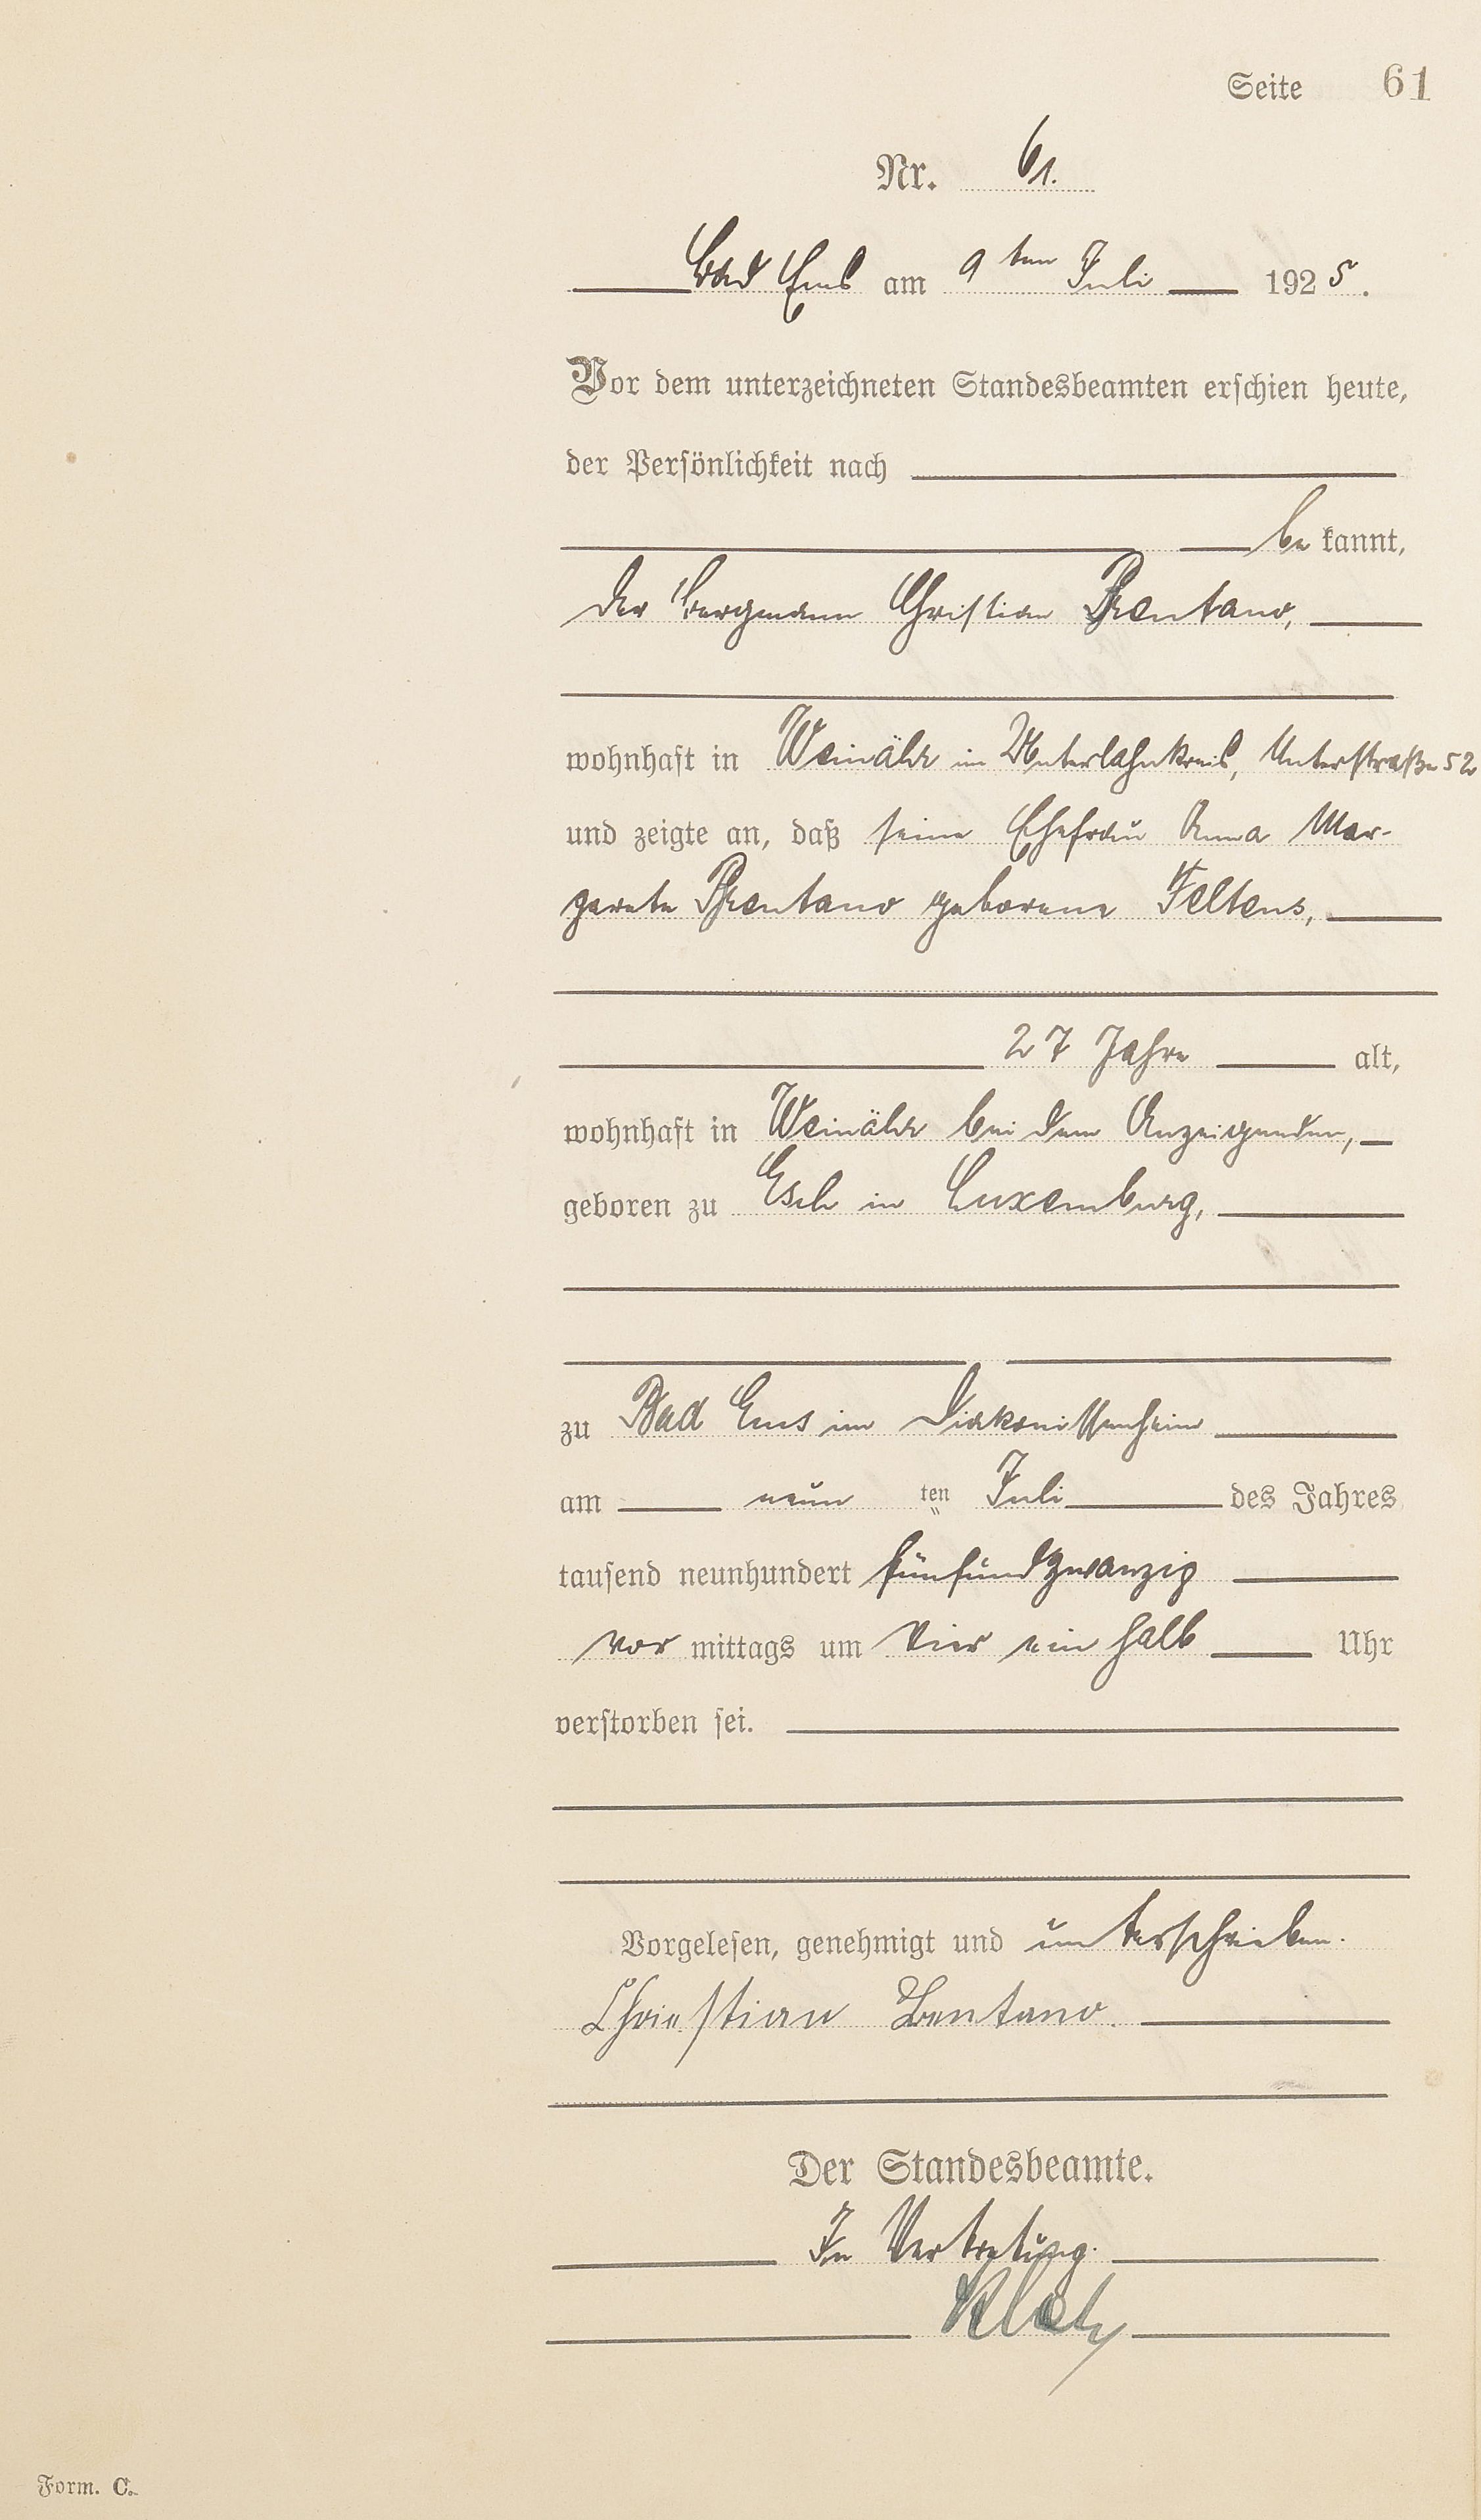 Seite 61
Nr. 61.
Bad Ems am 9ten Juli 1925.
Vor dem unterzeichneten Standesbeamten erschien heute,
der Persönlichkeit nach
be kannt,
der Bergmann Christian Brentano,
wohnhaft in Weinähr im Unterlahnkreis, Unterstraße 52
und zeigte an, daß seine Ehefrau Anna Mar-
garete Brentano geborene Feltens,
27 Jahre alt,
wohnhaft in Weinähr bei dem Anzeigenden,
geboren zu Esch in Luxemburg,
zu Bad Ems im Diakonissenheim
am neun ten Juli des Jahres
tausend neunhundert fünfundzwanzig
vor mittags um vier ein halb Uhr
verstorben sei.
Vorgelesen, genehmigt und unterschrieben.
Christian Brentano.
Der Standesbeamte.
In Vertretung.
Form. C.